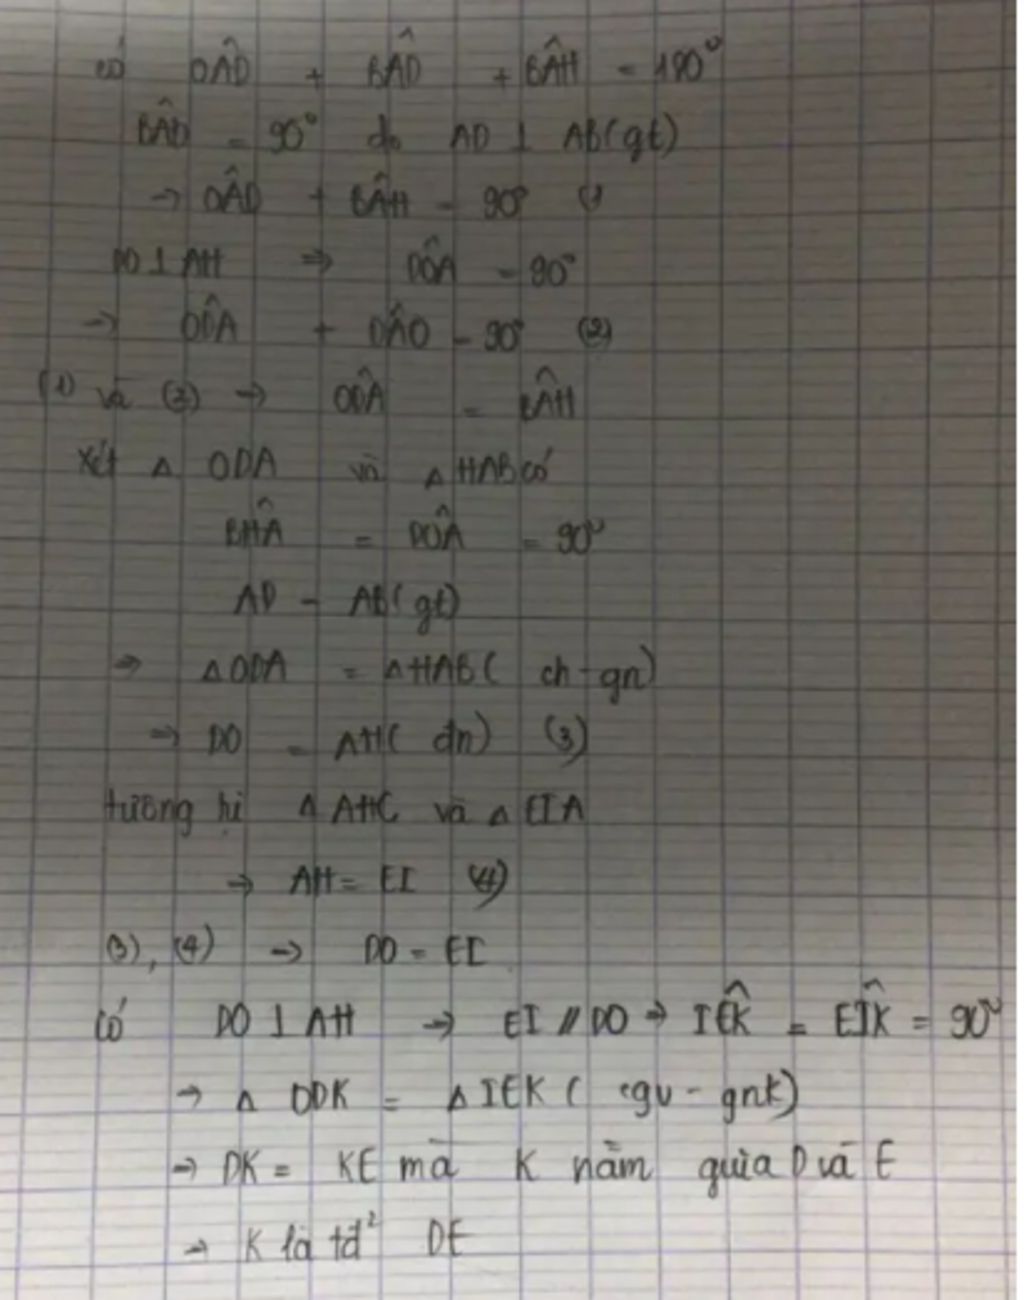 có OÂD + BÂD + BÂH = 180°
BÂD = 90° do AD ⊥ AB (gt)
→ OÂD + BÂH = 90° (1)
DO ⊥ AH ⇒ DÔA = 90°
→ OD̂A + DÂO = 90° (2)
(1) và (2) → OD̂A = BÂH
Xét Δ ODA và Δ HAB có
BĤA = DÔA = 90°
AD = AB (gt)
⇒ Δ ODA = Δ HAB ( ch - gn)
→ DO = AH ( đn) (3)
tương tự Δ AHC và Δ EIA
→ AH = EI (4)
(3), (4) → DO = EI
Có DO ⊥ AH → EI // DO → IÊK = EÎK = 90°
→ Δ ODK = Δ IEK ( cgv - gnk)
→ DK = KE mà K nằm giữa D và E
→ K là tđ² DE